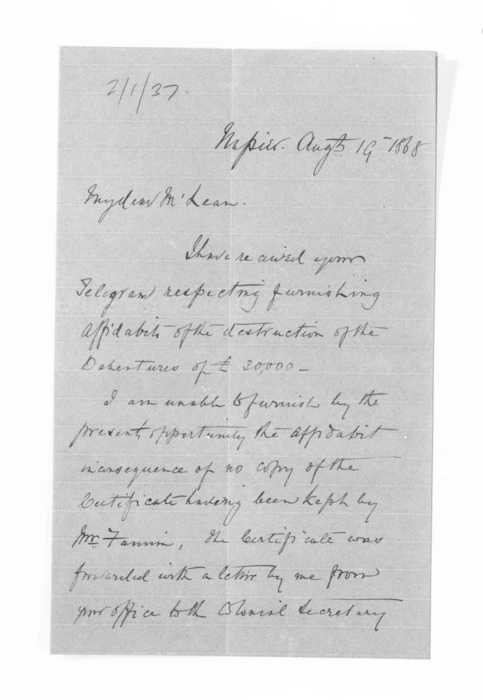 2/1/37.
Napier. Augt 19 1868
My dear McLean.
I have received your
Telegram respecting furnishing
affidabits of the destruction of the
Debentures of £ 30,000 –
I am unable to furnish by the
present opportunity the affidabit
in consequence of no copy of the
Certificate having been kept by
Mr Fannin, the Certificate was
forwarded with a letter by me from
your office to the Colonial Secretary